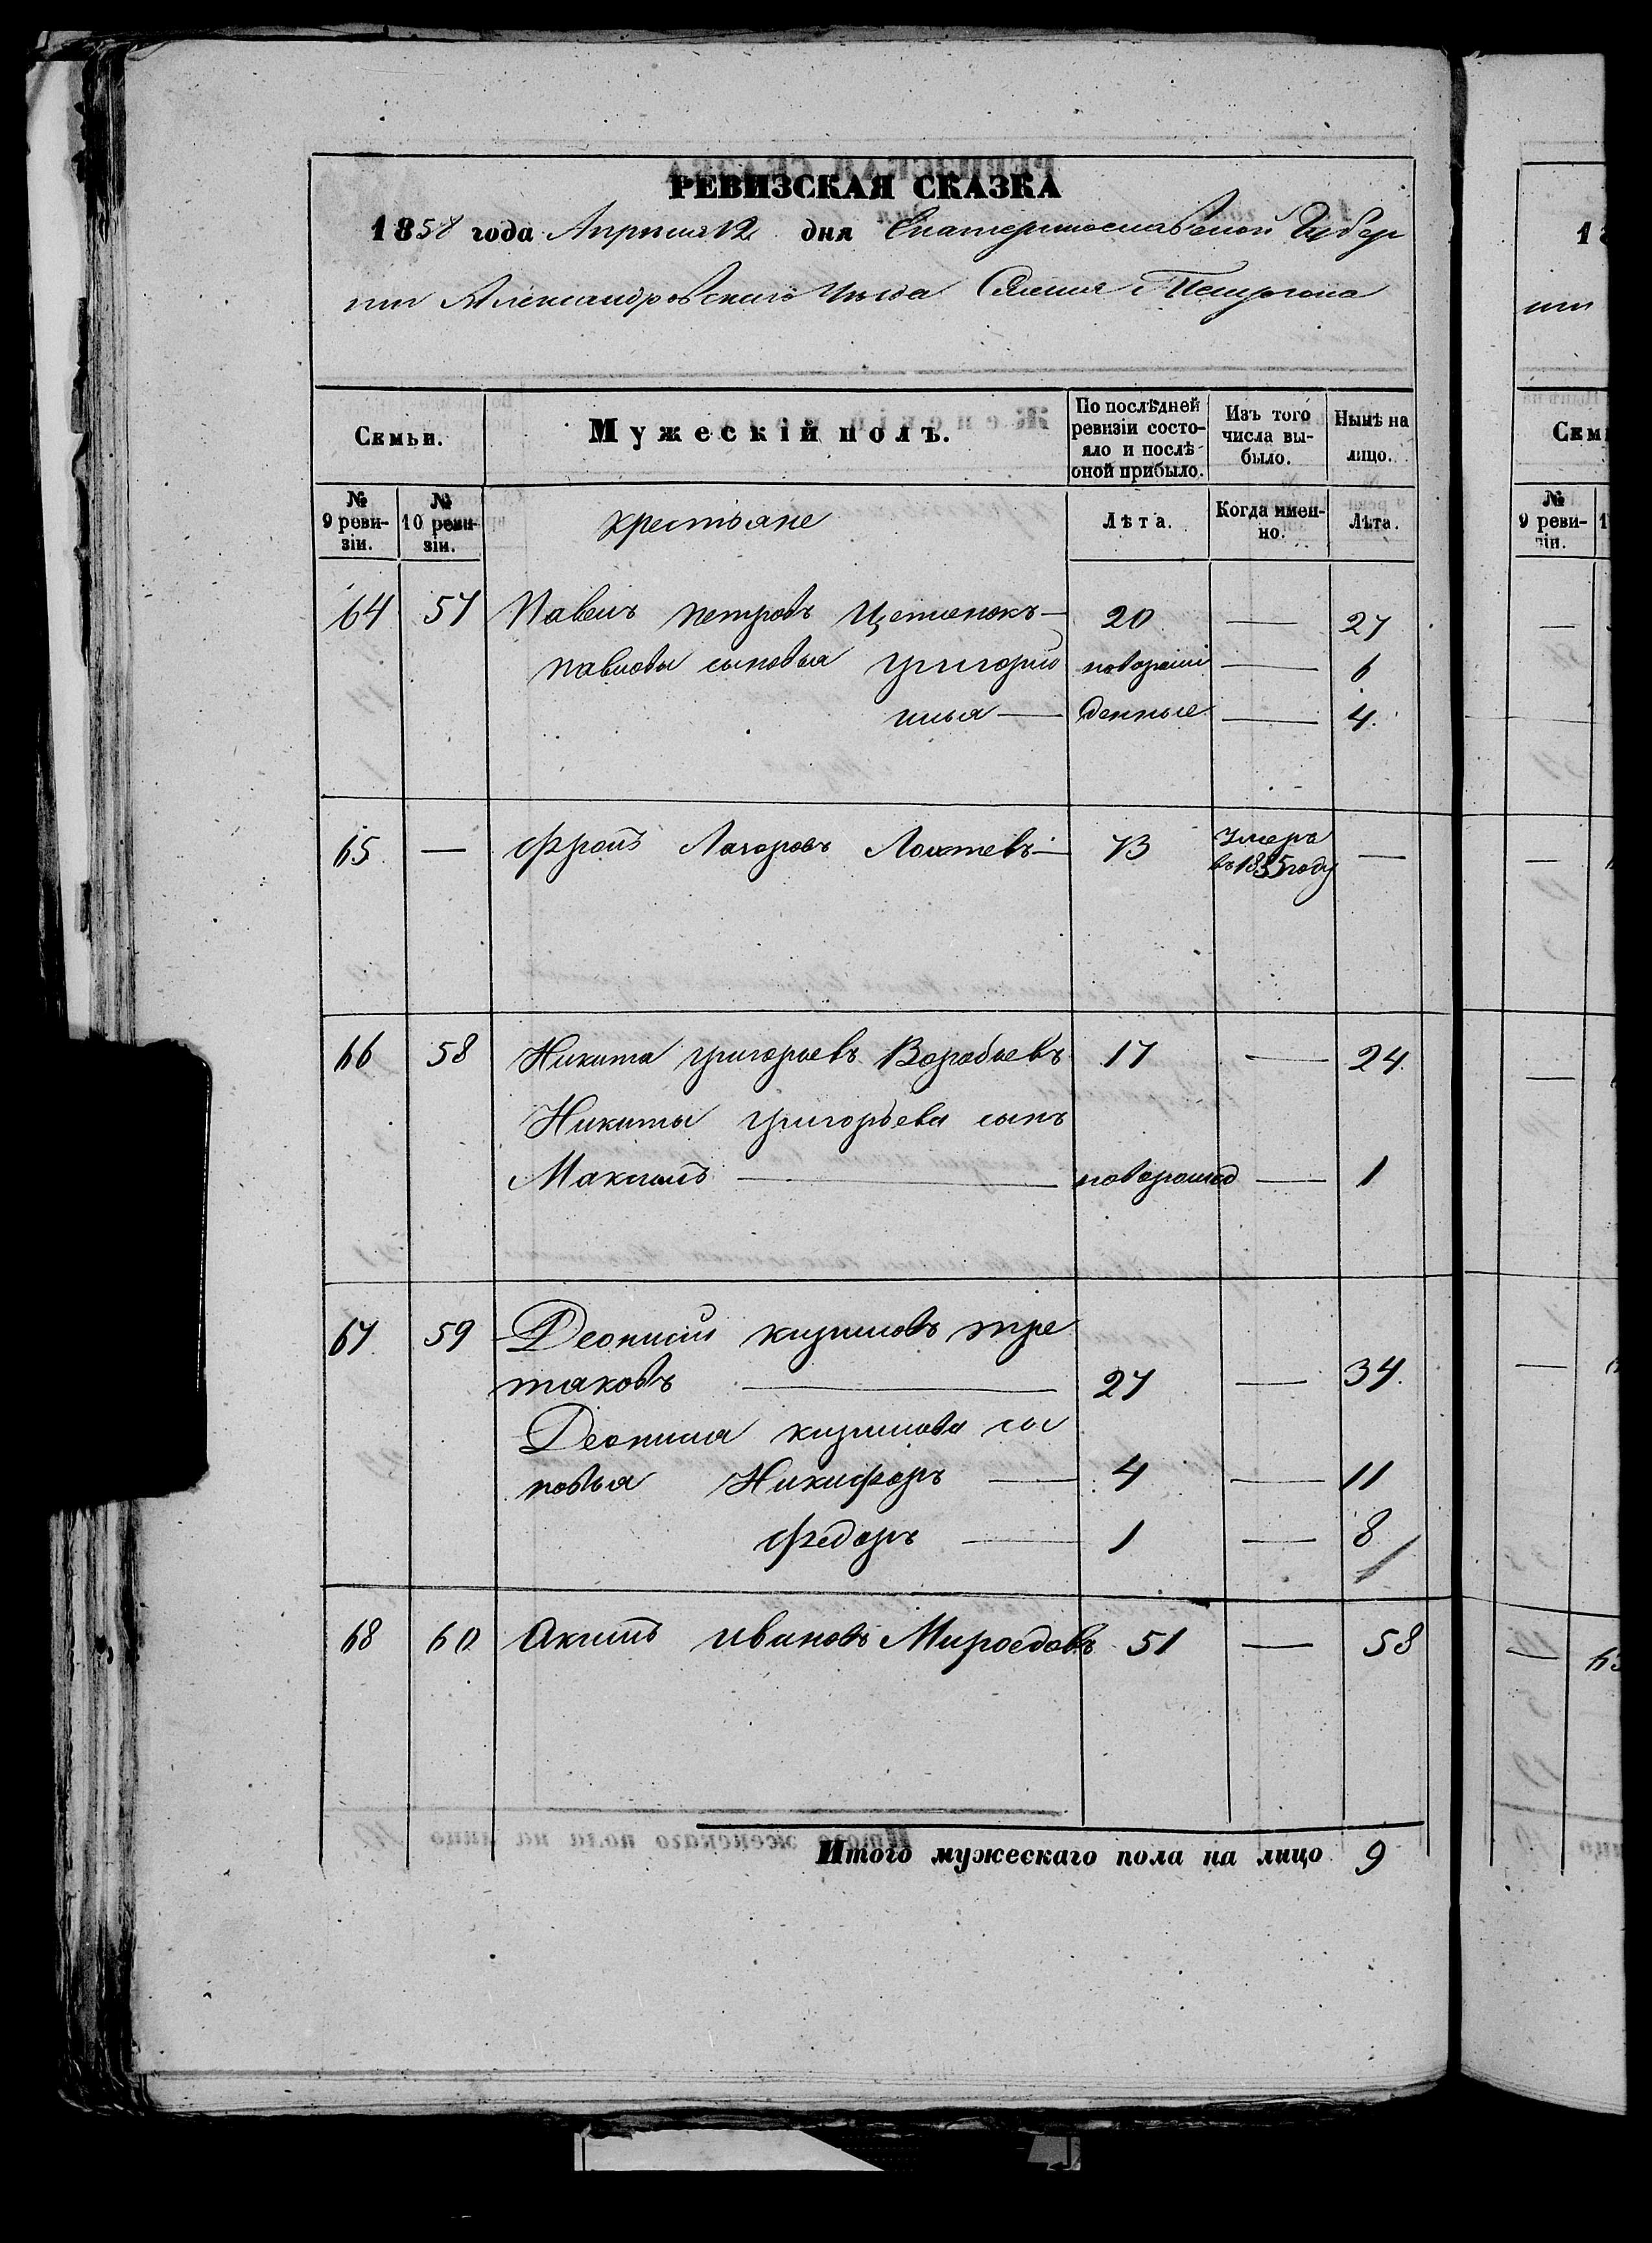 РЕВИЗСКАЯ СКАЗКА
1858 года Апреля 12 дня Екатеринославской Губер
нии Александровскаго Уезда Селения Петрогона
Семьи.
Мужескій полъ.
По послѣдней ревизіи состояло и послѣ оной прибыло.
Изъ того числа выбыло.
Нынѣ на лицо.
№ 9 ревизіи.
№ 10 ревизіи.
крестьяне
Лѣта.
Когда именно.
Лѣта.
64 57 Павелъ петровъ Щетенокъ — 20 — 27
павловы сыновья григорий новорожі — 6
илья — денные — 4.
65 — Лазоровъ Лохтевъ — 73 Умеръ в 1855 году —
66 58 Никита григорьевъ Воробьевъ 17 — 24.
Никиты григорьева сынъ
Максимъ — новорожд — 1
67 59 Деонисий кириловъ тре
таковъ — 27 — 34.
Деонисия кирилова сы
новья Никифоръ — 4 — 11
федоръ — 1 — 8
68 60 Акимъ ивановъ Мироедовъ 51 — 58
Итого мужескаго пола на лицо 9
Семь
№ 9 ревизіи.